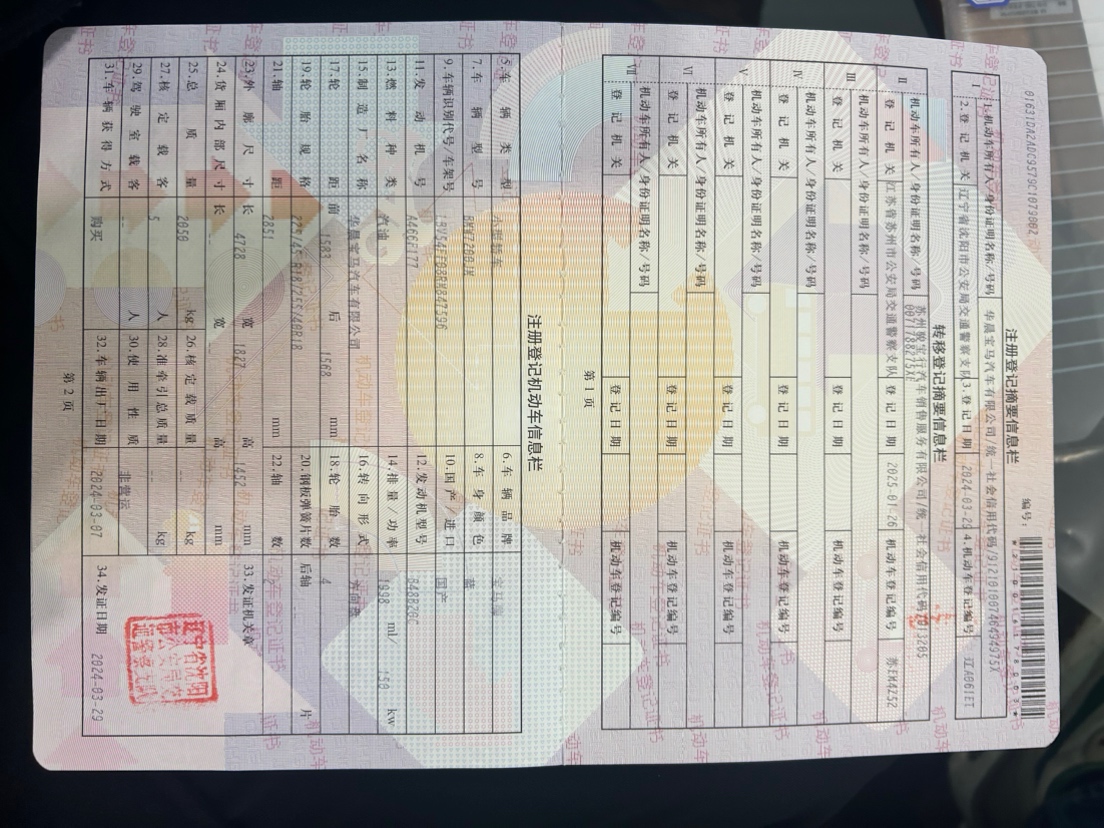 注册登记摘要信息栏
编号:
01631DA2ADC9579C1079002
I 1.机动车所有人/身份证明名称/号码 华晨宝马汽车有限公司/统一社会信用代码/
2.登记机关 辽宁省沈阳市公安局交通警察支队 3.登记日期 2024-03-29 4.机动车登记编号 辽A061ET
转移登记摘要信息栏
II 机动车所有人/身份证明名称/号码 汽车销售服务有限公司/统一社会信用代码/
登记机关 江苏省苏州市公安局交通警察支队 登记日期 2025-01-26 机动车登记编号 苏EM4Z52
III 机动车所有人/身份证明名称/号码
登记机关 登记日期 机动车登记编号
IV 机动车所有人/身份证明名称/号码
登记机关 登记日期 机动车登记编号
V 机动车所有人/身份证明名称/号码
登记机关 登记日期 机动车登记编号
VI 机动车所有人/身份证明名称/号码
登记机关 登记日期 机动车登记编号
VII 机动车所有人/身份证明名称/号码
登记机关 登记日期 机动车登记编号
第1页
注册登记机动车信息栏
5.车辆类型 小型轿车 6.车辆品牌 宝马牌
7.车辆型号 8.车身颜色 蓝
9.车辆识别代号/车架号 10.国产/进口 国产
11.发动机号 A466F177 12.发动机型号 B48B20C
13.燃料种类 汽油 14.排量/功率 1998 ml/ 150 kw
15.制造厂名称 华晨宝马汽车有限公司 16.转向形式 方向盘
17.轮距 前 1583 后 1568 mm 18.轮胎数 4
19.轮胎规格 225/45 R18/255/40R18 20.钢板弹簧片数 后轴 片
21.轴距 2851 mm 22.轴数 2
23.外廓尺寸 长 4728 宽 1827 高 1452 mm
24.货厢内部尺寸 长 宽 高 mm
33.发证机关章
25.总质量 2050 kg 26.核定载质量 -- kg
27.核定载客 5 人 28.准牵引总质量 -- kg
29.驾驶室载客 -- 人 30.使用性质 非营运
31.车辆获得方式 购买 32.车辆出厂日期 2024-03-07 34.发证日期 2024-03-29
第2页